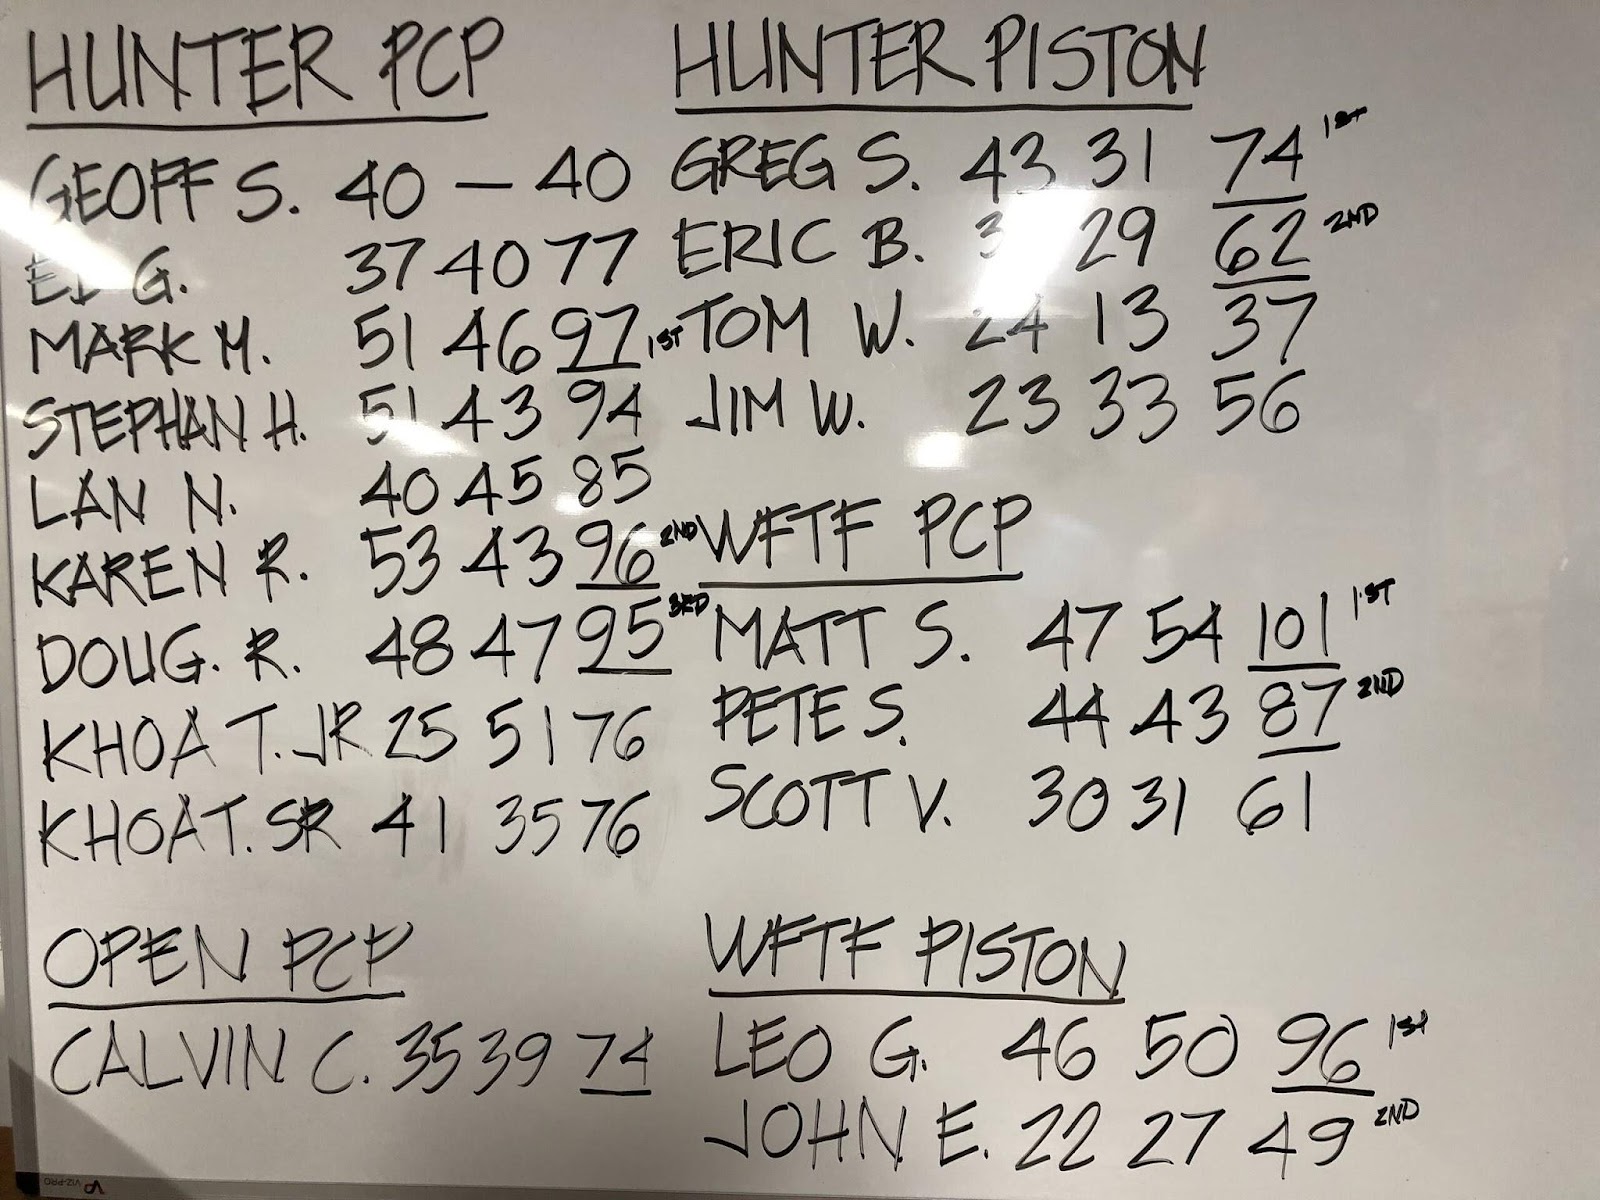 HUNTER PCP
GEOFF S. 40 — 40
ED G. 37 40 77
MARK M. 51 46 97 1ST
STEPHAN H. 51 43 94
LAN N. 40 45 85
KAREN R. 53 43 96 2ND
DOUG. R. 48 47 95 3RD
KHOA T. JR 25 51 76
KHOA T. SR 41 35 76
OPEN PCP
CALVIN C. 35 39 74
HUNTER PISTON
GREG S. 43 31 74 1ST
ERIC B. 29 62 2ND
TOM W. 24 13 37
JIM W. 23 33 56
WFTF PCP
MATT S. 47 54 101 1ST
PETE S. 44 43 87 2ND
SCOTT V. 30 31 61
WFTF PISTON
LEO G. 46 50 96 1ST
JOHN E. 22 27 49 2ND
VIZ-PRO